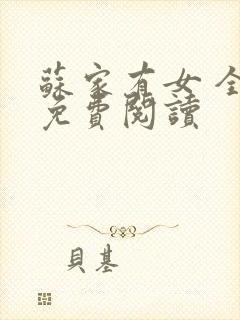 蘇家有女 全
免費閱讀
貝基